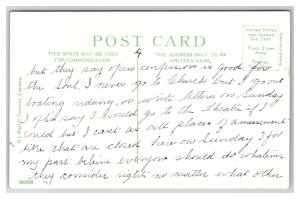 POST CARD
THIS SPACE MAY BE USED
FOR COMMUNICATION
4
THE ADDRESS ONLY TO BE
WRITTEN HERE
but they say open confession is Good for
the Soul. I never go to Church but I go out
boating riding, or write letters on Sunday
I often say I would go to the Theatre if I
could but I cant as all places of amusement
are closed here on Sunday I for
my part believe everyone should do whatever
they consider right no matter what other